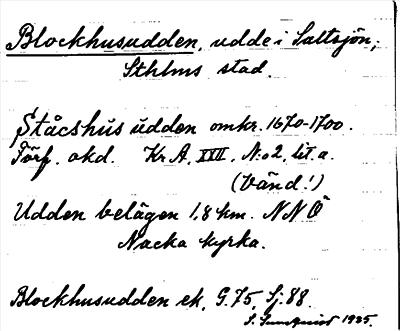 Blockhusudden, udde i Saltsjön,
Sthlms stad.
Ståcshus udden omkr. 1670-1700.
Förf. okd. Kr.A. XVII, N:o 2, lit. a.
(Vänd!)
Udden belägen 1,8 km. NNÖ
Nacka kyrka.
Blockhusudden ek. G.75, Sj.88.
S. 1935.